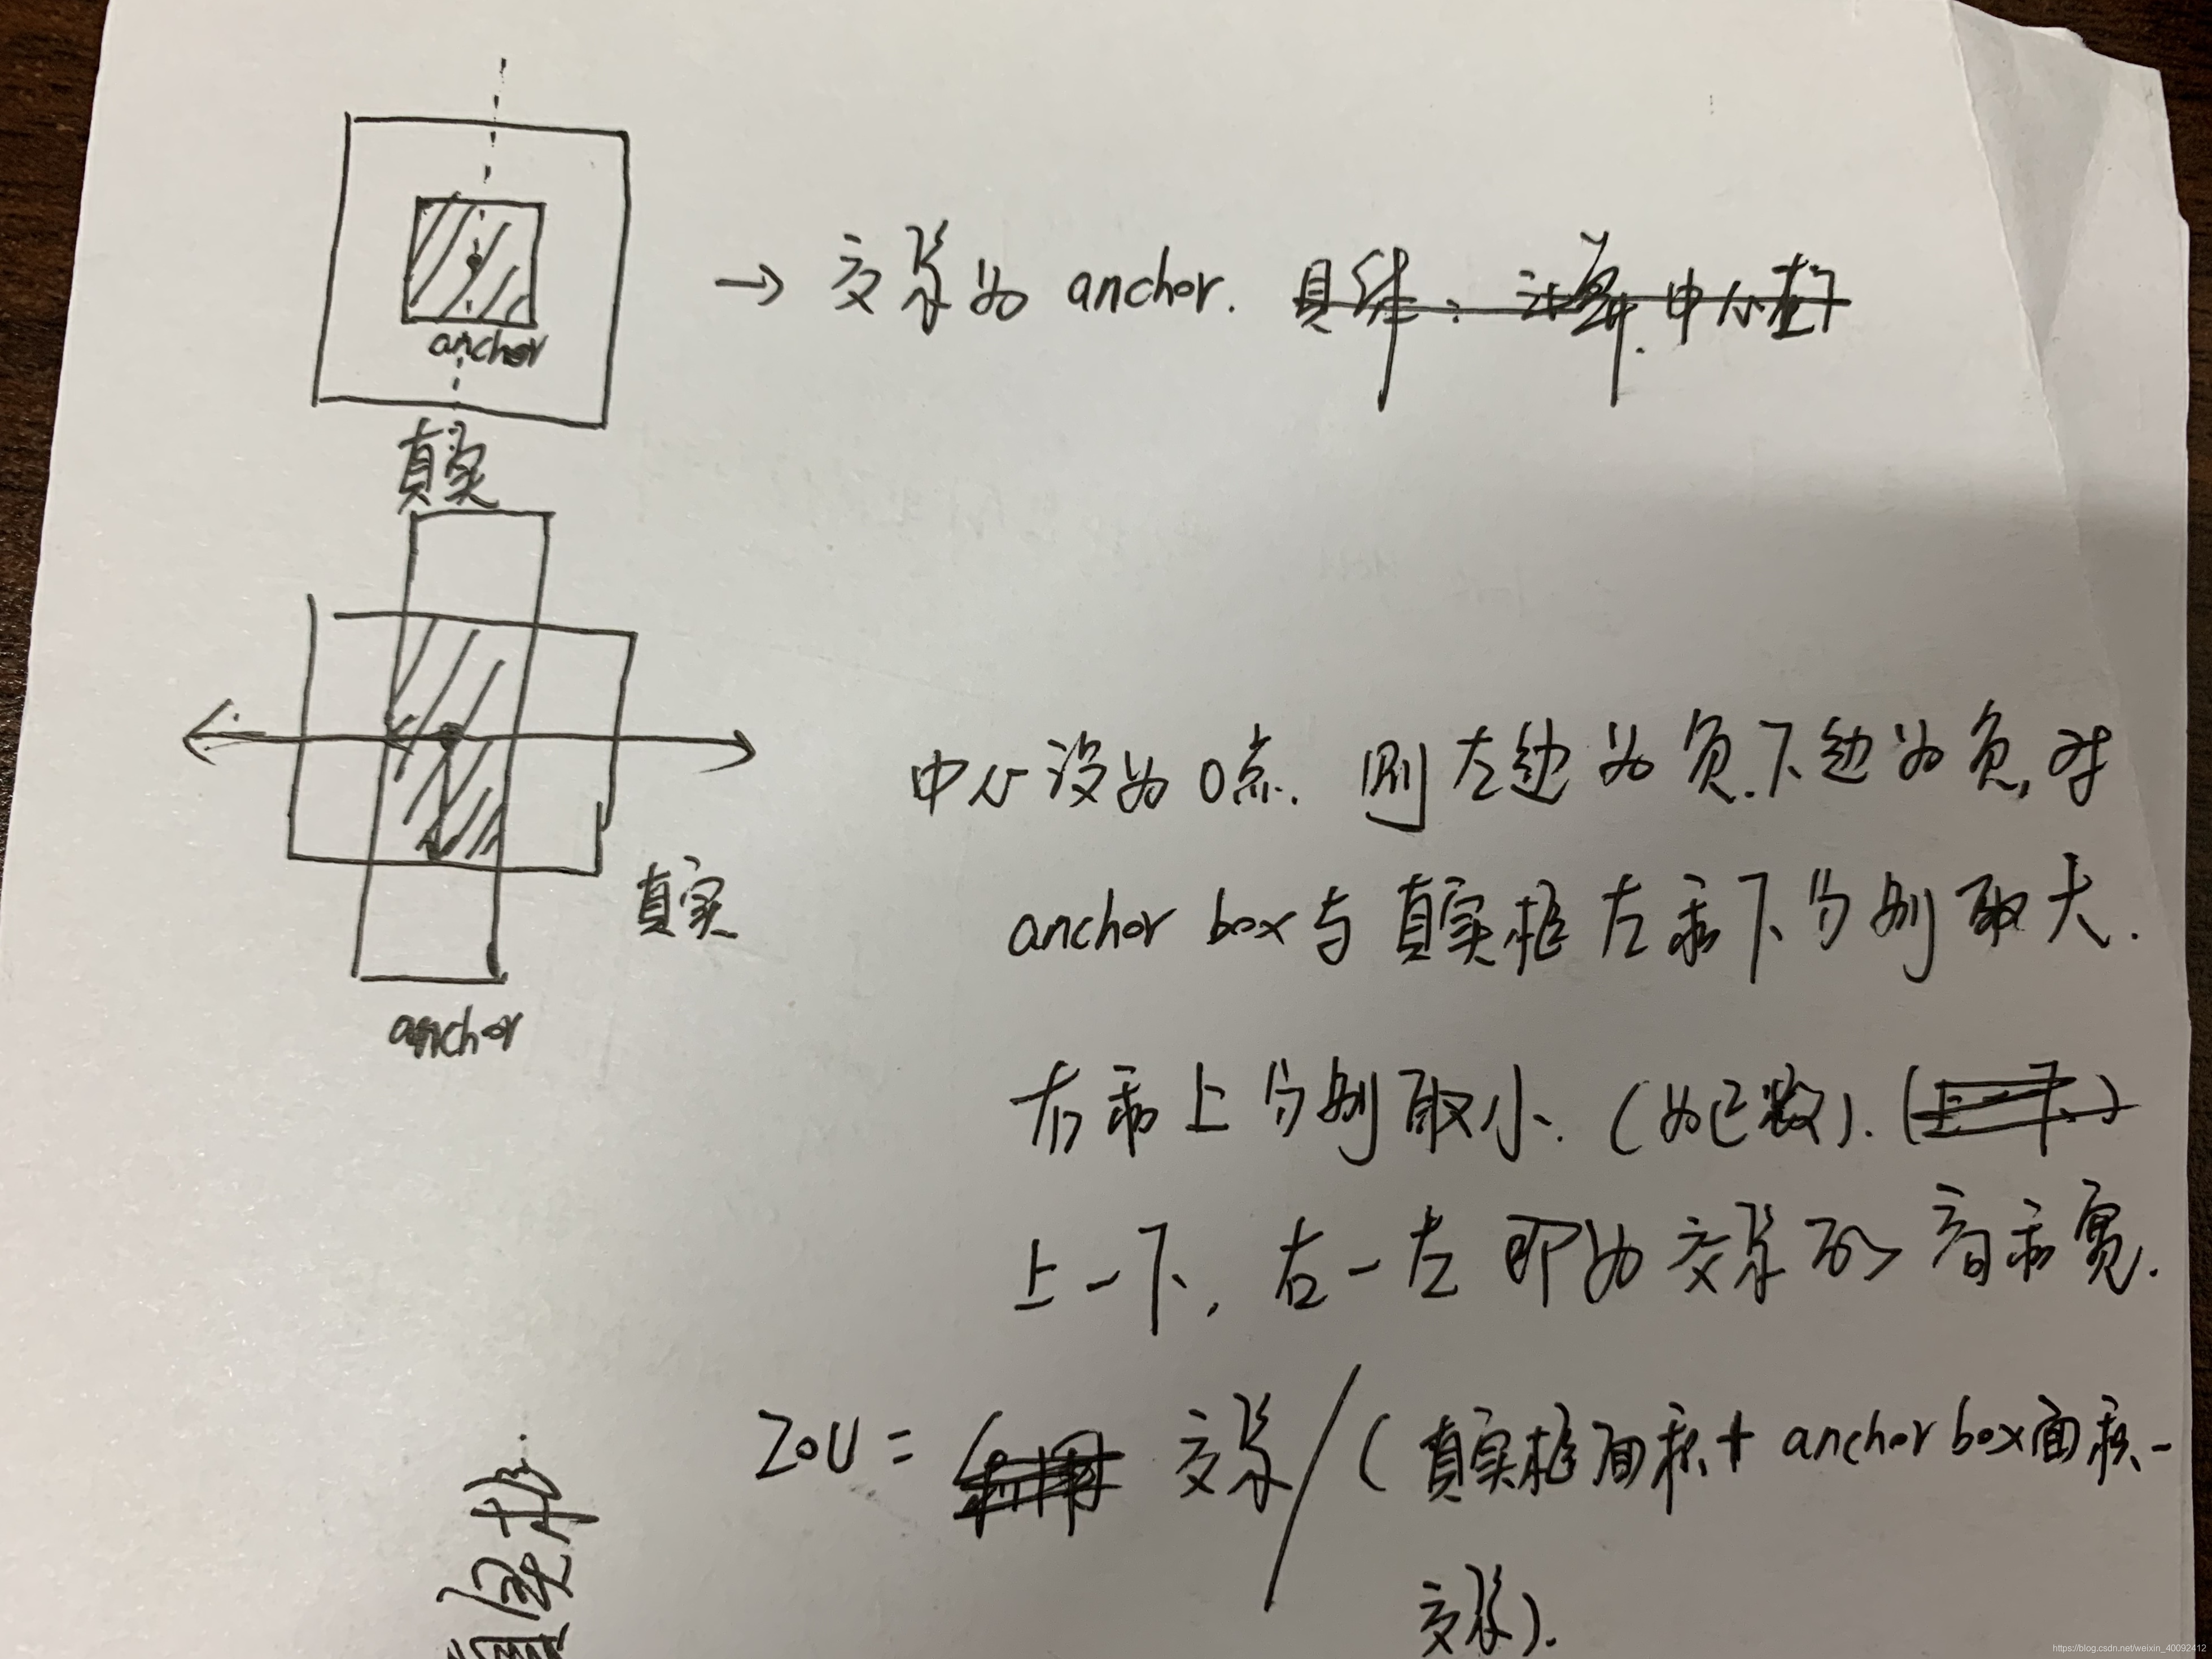 anchor
真实
→ 交集为 anchor. 具体:计算.中心在
真实
anchor
中心设为0点. 则左边为负.下边为负,对
anchor box与真实框左和下分别取大.
右和上分别取小.(为正数).(上一下)
上一下, 右一左 即为交集的高和宽.
IOU = 交集/(真实框面积+anchor box面积-
交集).
https://blog.csdn.net/weixin_40092412